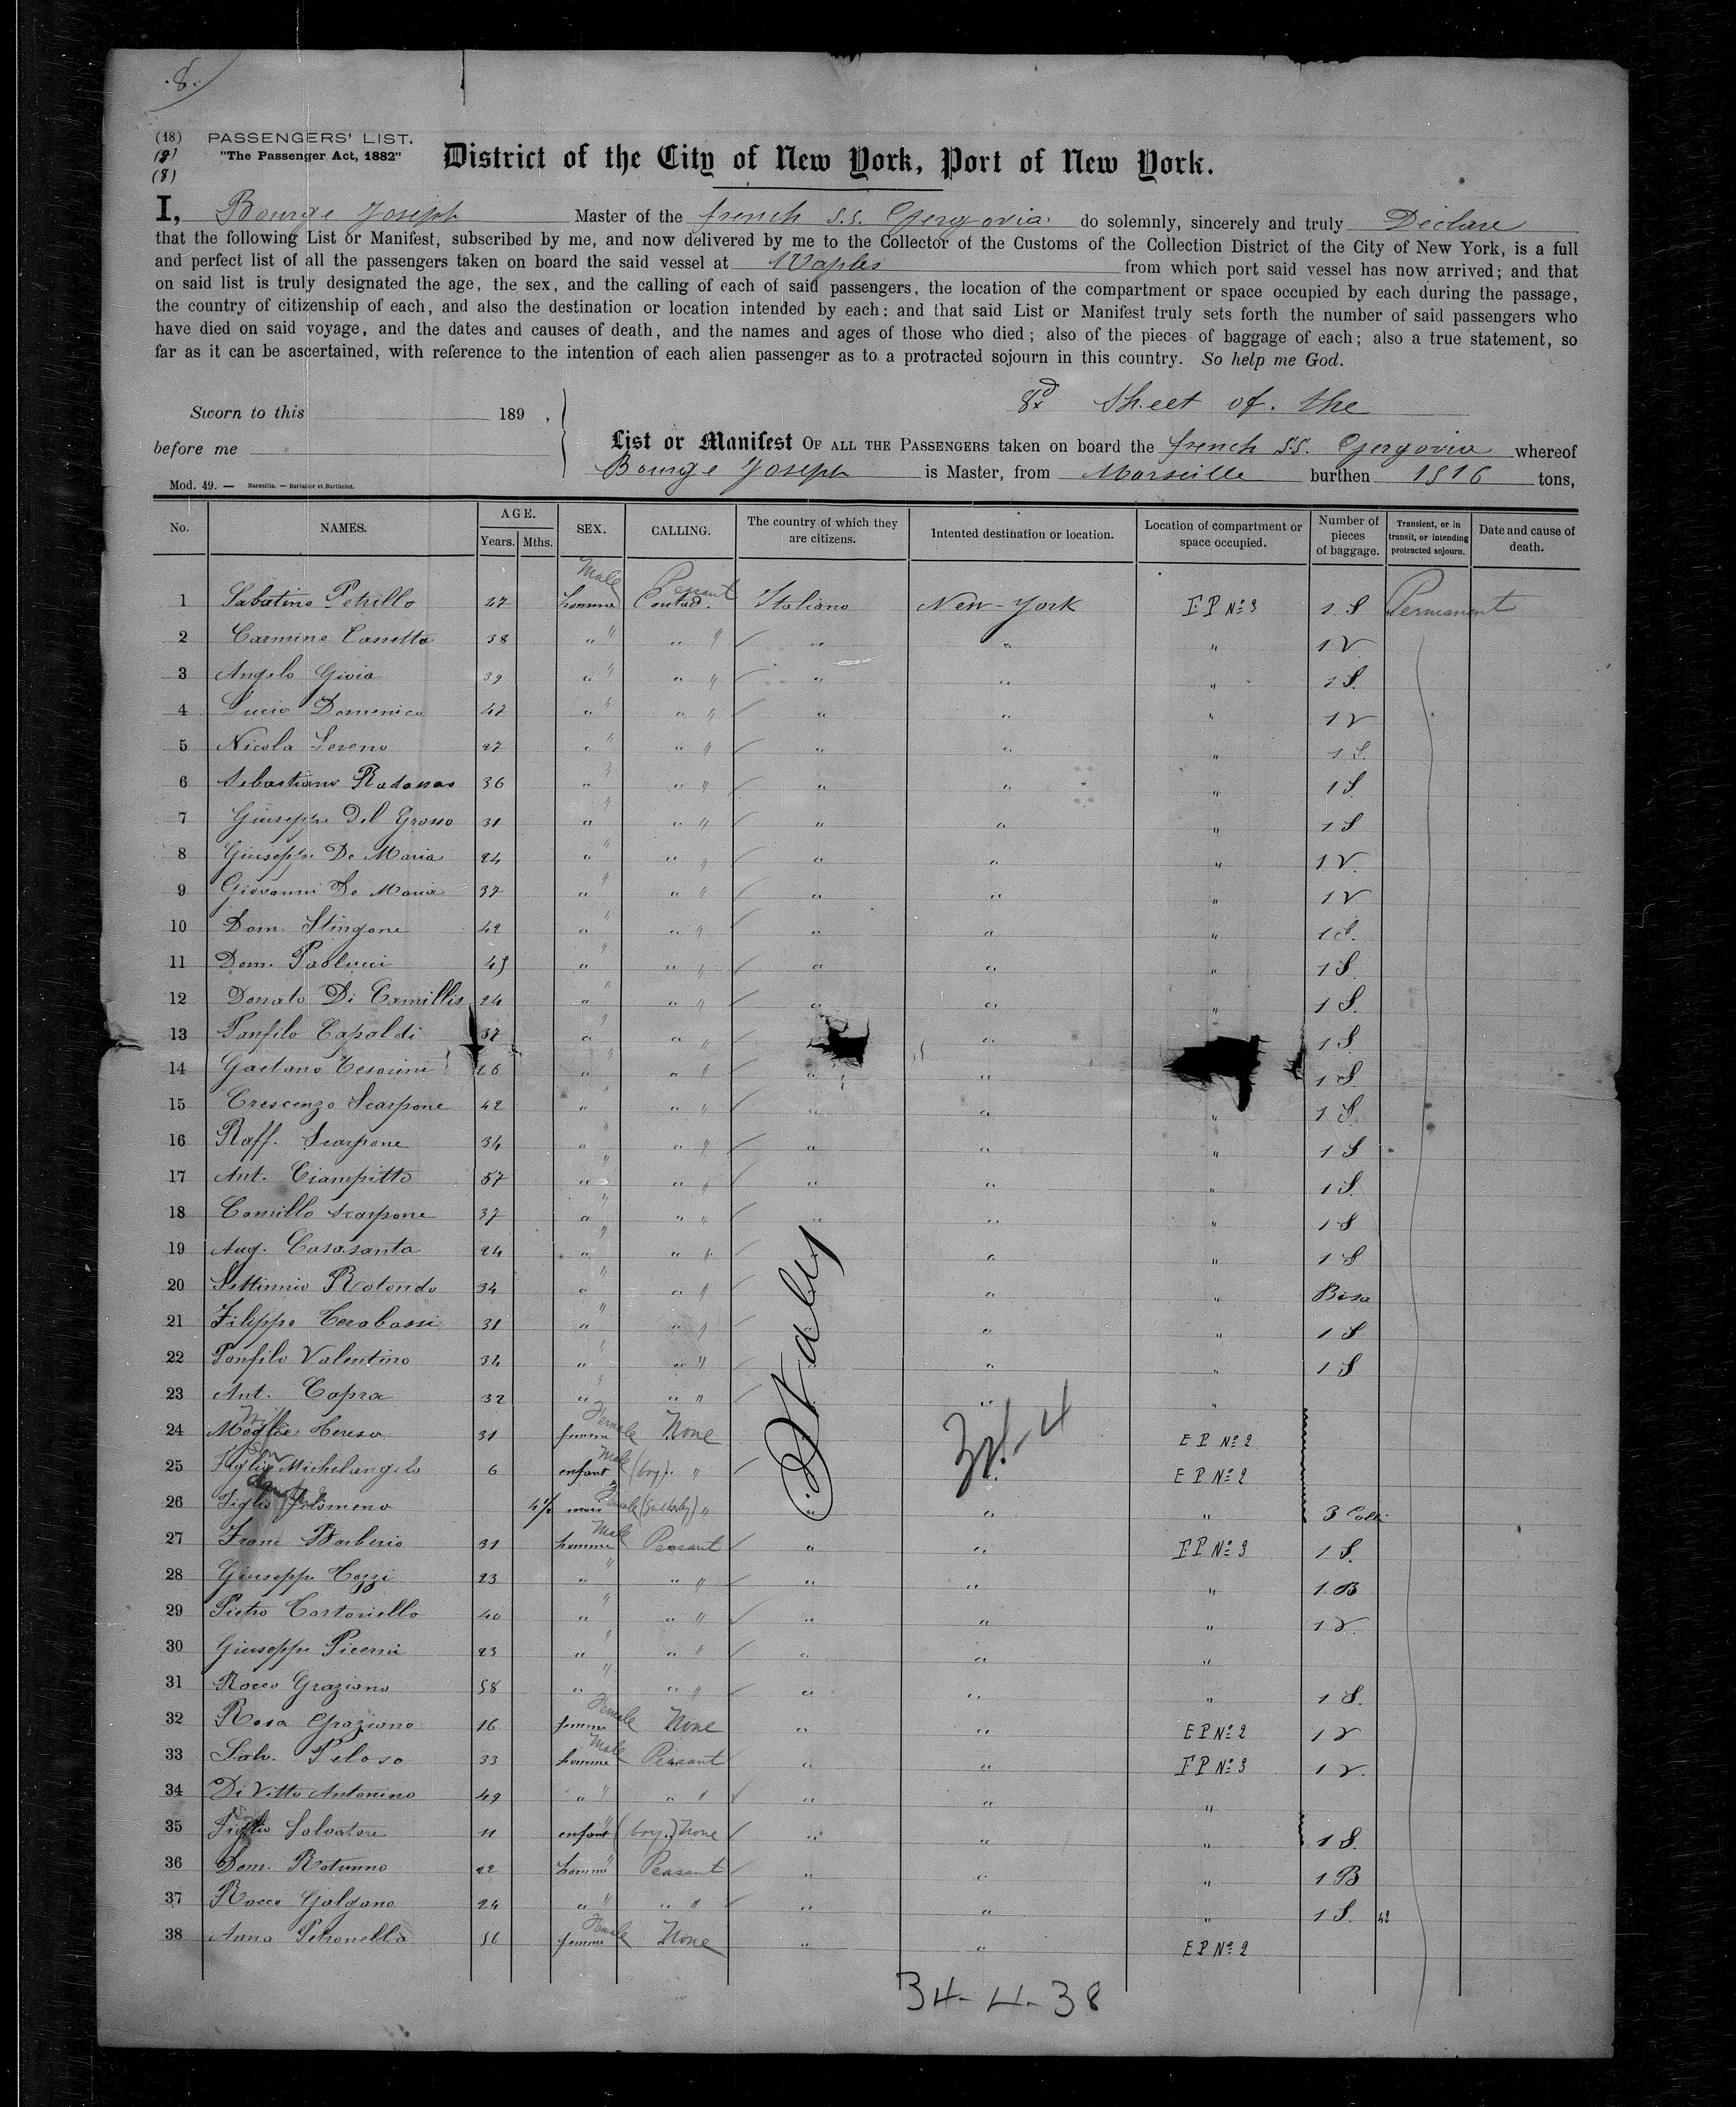 8.
(18) PASSENGERS' LIST.
(8) "The Passenger Act, 1882"
(8)
District of the City of New York, Port of New York.
I, Bourge Joseph Master of the french S.S. Gergovia do solemnly, sincerely and truly Declare
that the following List or Manifest, subscribed by me, and now delivered by me to the Collector of the Customs of the Collection District of the City of New York, is a full
and perfect list of all the passengers taken on board the said vessel at Naples from which port said vessel has now arrived; and that
on said list is truly designated the age, the sex, and the calling of each of said passengers, the location of the compartment or space occupied by each during the passage,
the country of citizenship of each, and also the destination or location intended by each: and that said List or Manifest truly sets forth the number of said passengers who
have died on said voyage, and the dates and causes of death, and the names and ages of those who died; also of the pieces of baggage of each; also a true statement, so
far as it can be ascertained, with reference to the intention of each alien passenger as to a protracted sojourn in this country. So help me God.
8 Sheet of the
Sworn to this 189 ,
before me
List or Manifest OF ALL THE PASSENGERS taken on board the french S.S. Gergovia whereof
Bourge Joseph is Master, from Marseille burthen 1816 tons,
Mod. 49. — Marseille. — Barlatier et Barthelet.
No. NAMES. AGE. Years. Mths. SEX. CALLING. The country of which they are citizens. Intented destination or location. Location of compartment or space occupied. Number of pieces of baggage. Transient, or in transit, or intending protracted sojourn. Date and cause of death.
1 Sabatino Petrillo 27 Male homme Peasant Contad. Italiano New-York F P No 3 1 S Permanent
2 Carmine Cassetta 38 " " " " " " " 1 V
3 Angelo Gioia 39 " " " " " " " 1 S.
4 Lucio Domenico 47 " " " " " " " 1 V
5 Nicola Sereno 27 " " " " " " " 1 S.
6 Sebastiano 36 " " " " " " " 1 S.
7 Giuseppe Del Grosso 31 " " " " " " " 1 S
8 Giuseppe De Maria 24 " " " " " " " 1 V.
9 Giovanni De Maria 37 " " " " " " " 1 V
10 Dom. Stingone 42 " " " " " " " 1 S.
11 Dom. Paolucci 45 " " " " " " " 1 S.
12 Donato Di Camillis 24 " " " " " " " 1 S.
13 Panfilo Capaldi 37 " " " " " 1 S.
14 Gaetano Tesorini 26 " " " " " " 1 S
15 Crescenzo Scarpone 42 " " " " " " " 1 S.
16 Raff. Scarpone 34 " " " " " " " 1 S
17 Ant. Ciampitto 57 " " " " " " " 1 S.
18 Camillo Scarpone 37 " " " " " " " 1 S
19 Aug. Casasanta 24 " " " " " " 1 S
20 Settimio Rotondo 34 " " " " " " Bisa
21 Filippo Terabassi 31 " " " " " " 1 S
22 Panfilo Valentino 34 " " " " " " 1 S
23 Ant. Capra 32 " " " " " "
24 Moglie Teresa 31 Female femme None E P No 2
25 Son Figlio Michelangelo 6 Male enfant (boy) " " E P No 2
26 Figlia Filomena 4½ mois Female " " " " 3 Colli
27 Franc Barberio 31 Male homme Peasant " " F P No 3 1 S.
28 Giuseppe Tozzi 23 " " " " " " " 1 B
29 Pietro Cortoriello 40 " " " " " " " 1 V.
30 Giuseppe Picerni 23 " " " " " " "
31 Rocco Graziano 58 " " " " " " " 1 S.
32 Rosa Graziano 16 Female femme None " " E P No 2 1 V
33 Salv. Peloso 33 Male homme Peasant " " F P No 3 1 V.
34 Di Vitto Antonino 49 " " " " " " "
35 Figlio Salvatore 11 enfant " (boy.) None " " " 1 S.
36 Dom. Rotunno 22 homme " Peasant " " " 1 B
37 Rocco Galgano 24 " " " " " " " 1 S. 42
38 Anna Petronella 56 Female femme None " " E P No 2
Italy
34-4
34-4-38